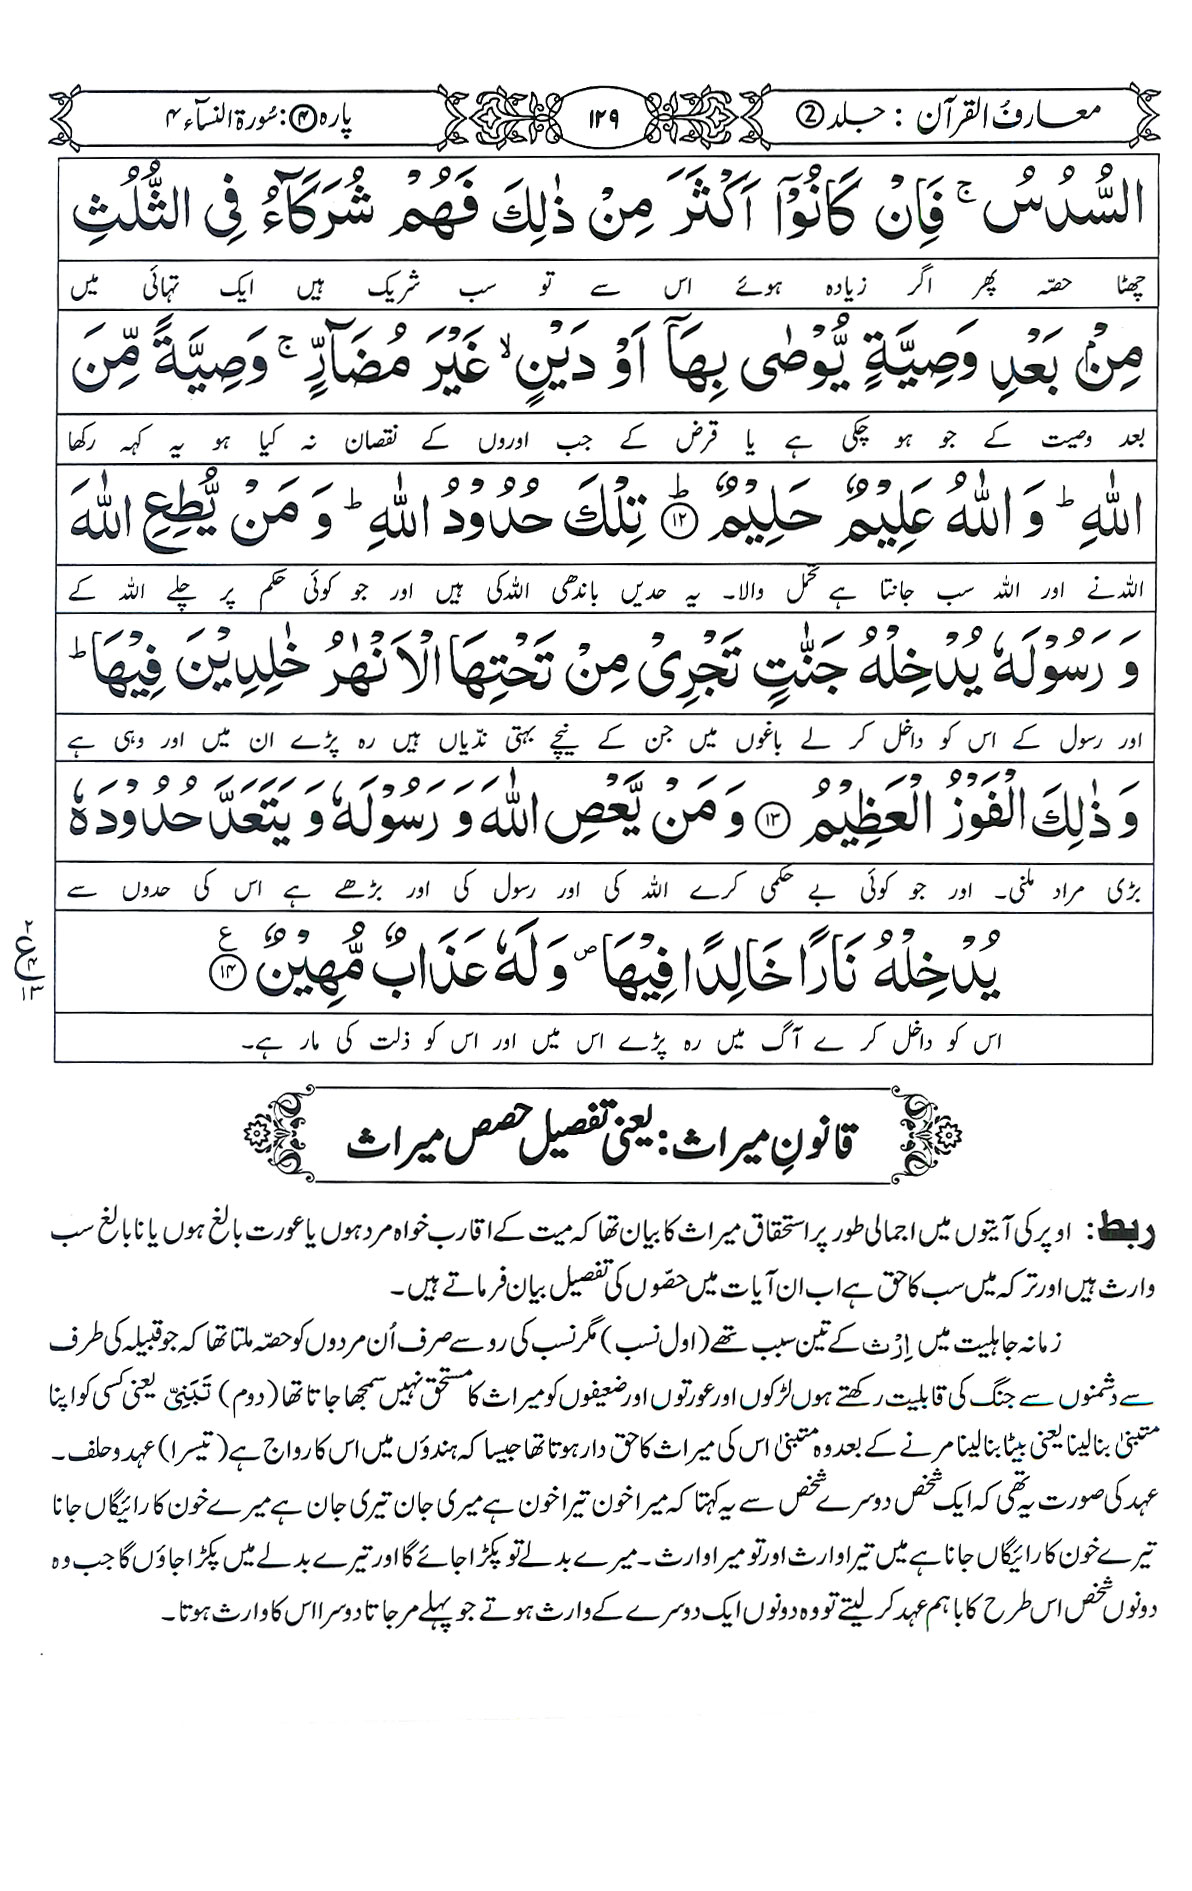 معارفُ القرآن : جلد 2
۱۲۹
پارہ ۴: سُورۃ النسآء ۴
السُّدُسُ ۚ فَاِنْ كَانُوْۤا اَكْثَرَ مِنْ ذٰلِكَ فَهُمْ شُرَكَآءُ فِى الثُّلُثِ
چھٹا حصّہ پھر اگر زیادہ ہوئے اس سے تو سب شریک ہیں ایک تہائی میں
مِنْۢ بَعْدِ وَصِيَّةٍ يُّوْصٰى بِهَاۤ اَوْ دَيْنٍ ۙ غَيْرَ مُضَآرٍّ ۚ وَصِيَّةً مِّنَ
بعد وصیت کے جو ہو چکی ہے یا قرض کے جب اوروں کے نقصان نہ کیا ہو یہ کہہ رکھا
اللّٰهِ ؕ وَ اللّٰهُ عَلِيْمٌ حَلِيْمٌ ؕ ۱۲ تِلْكَ حُدُوْدُ اللّٰهِ ؕ وَ مَنْ يُّطِعِ اللّٰهَ
اللہ نے اور اللہ سب جانتا ہے تحمل والا۔ یہ حدیں باندھی اللہ کی ہیں اور جو کوئی حکم پر چلے اللہ کے
وَ رَسُوْلَهٗ يُدْخِلْهُ جَنّٰتٍ تَجْرِىْ مِنْ تَحْتِهَا الْاَنْهٰرُ خٰلِدِيْنَ فِيْهَا ؕ
اور رسول کے اس کو داخل کر لے باغوں میں جن کے نیچے بہتی ندّیاں ہیں رہ پڑے ان میں اور وہی ہے
وَ ذٰلِكَ الْفَوْزُ الْعَظِيْمُ ۱۳ وَ مَنْ يَّعْصِ اللّٰهَ وَ رَسُوْلَهٗ وَ يَتَعَدَّ حُدُوْدَهٗ
بڑی مراد ملنی۔ اور جو کوئی بے حکمی کرے اللہ کی اور رسول کی اور بڑھے ہے اس کی حدوں سے
يُدْخِلْهُ نَارًا خَالِدًا فِيْهَا ۪ وَ لَهٗ عَذَابٌ مُّهِيْنٌ ع ۱۴
۲
ع
۴
۱۳
اس کو داخل کر ے آگ میں رہ پڑے اس میں اور اس کو ذلت کی مار ہے۔
قانونِ میراث: یعنی تفصیل حصص میراث
ربط: اوپر کی آیتوں میں اجمالی طور پر استحقاق میراث کا بیان تھا کہ میت کے اقارب خواہ مرد ہوں یا عورت بالغ ہوں یا نابالغ سب
وارث ہیں اور ترکہ میں سب کا حق ہے اب ان آیات میں حصّوں کی تفصیل بیان فرماتے ہیں۔
زمانہ جاہلیت میں اِرْث کے تین سبب تھے (اول نسب) مگر نسب کی رو سے صرف اُن مردوں کو حصّہ ملتا تھا کہ جو قبیلہ کی طرف
سے دشمنوں سے جنگ کی قابلیت رکھتے ہوں لڑکوں اور عورتوں اور ضعیفوں کو میراث کا مستحق نہیں سمجھا جاتا تھا (دوم) تَبَنِیّ یعنی کسی کو اپنا
متبنیٰ بنا لینا یعنی بیٹا بنا لینا مرنے کے بعد وہ متبنیٰ اس کی میراث کا حق دار ہوتا تھا جیسا کہ ہندوؤں میں اس کا رواج ہے (تیسرا) عہد و حلف۔
عہد کی صورت یہ تھی کہ ایک شخص دوسرے شخص سے یہ کہتا کہ میرا خون تیرا خون ہے میری جان تیری جان ہے میرے خون کا رائیگاں جانا
تیرے خون کا رائیگاں جانا ہے میں تیرا وارث اور تو میرا وارث۔ میرے بدلے تو پکڑا جائے گا اور تیرے بدلے میں پکڑا جاؤں گا جب وہ
دونوں شخص اس طرح کا باہم عہد کر لیتے تو وہ دونوں ایک دوسرے کے وارث ہوتے جو پہلے مر جاتا دوسرا اس کا وارث ہوتا۔